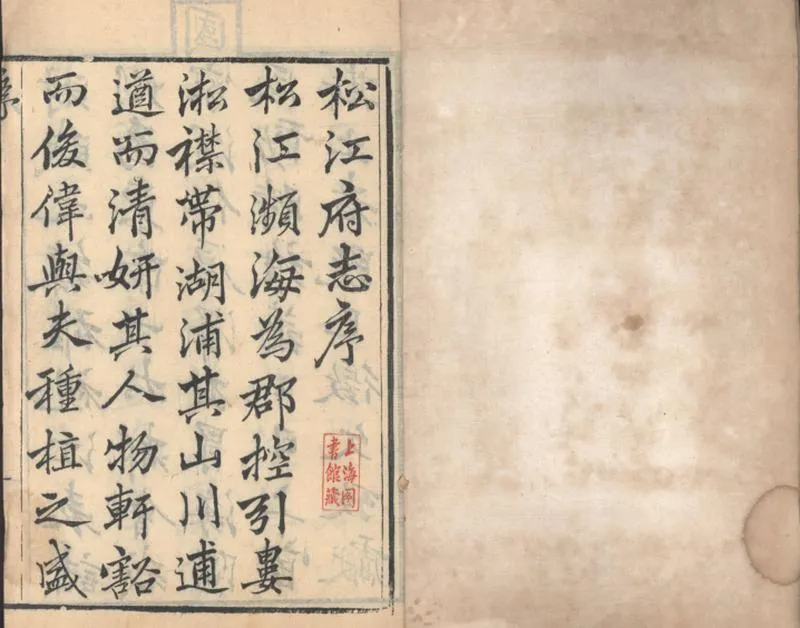 松江府志序
上海图
書館藏
松江瀕海為郡控引婁
淞襟帶湖浦其山川逋
遒而清妍其人物軒豁
而俊偉與夫種植之盛
序